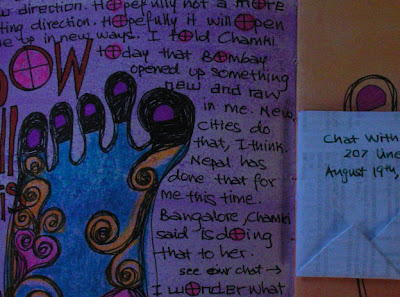 w direction. Hopefully not a more
ting direction. Hopefully it will open
me up in new ways. I told Chamki
today that Bombay
opened up something
new and raw
in me. New
cities do
that, I think.
Nepal has
done that for
me this time.
Bangalore, Chamki
said is doing
that to her.
see our chat →
I wonder what
OW
Chat With
207 Une
August 19th,